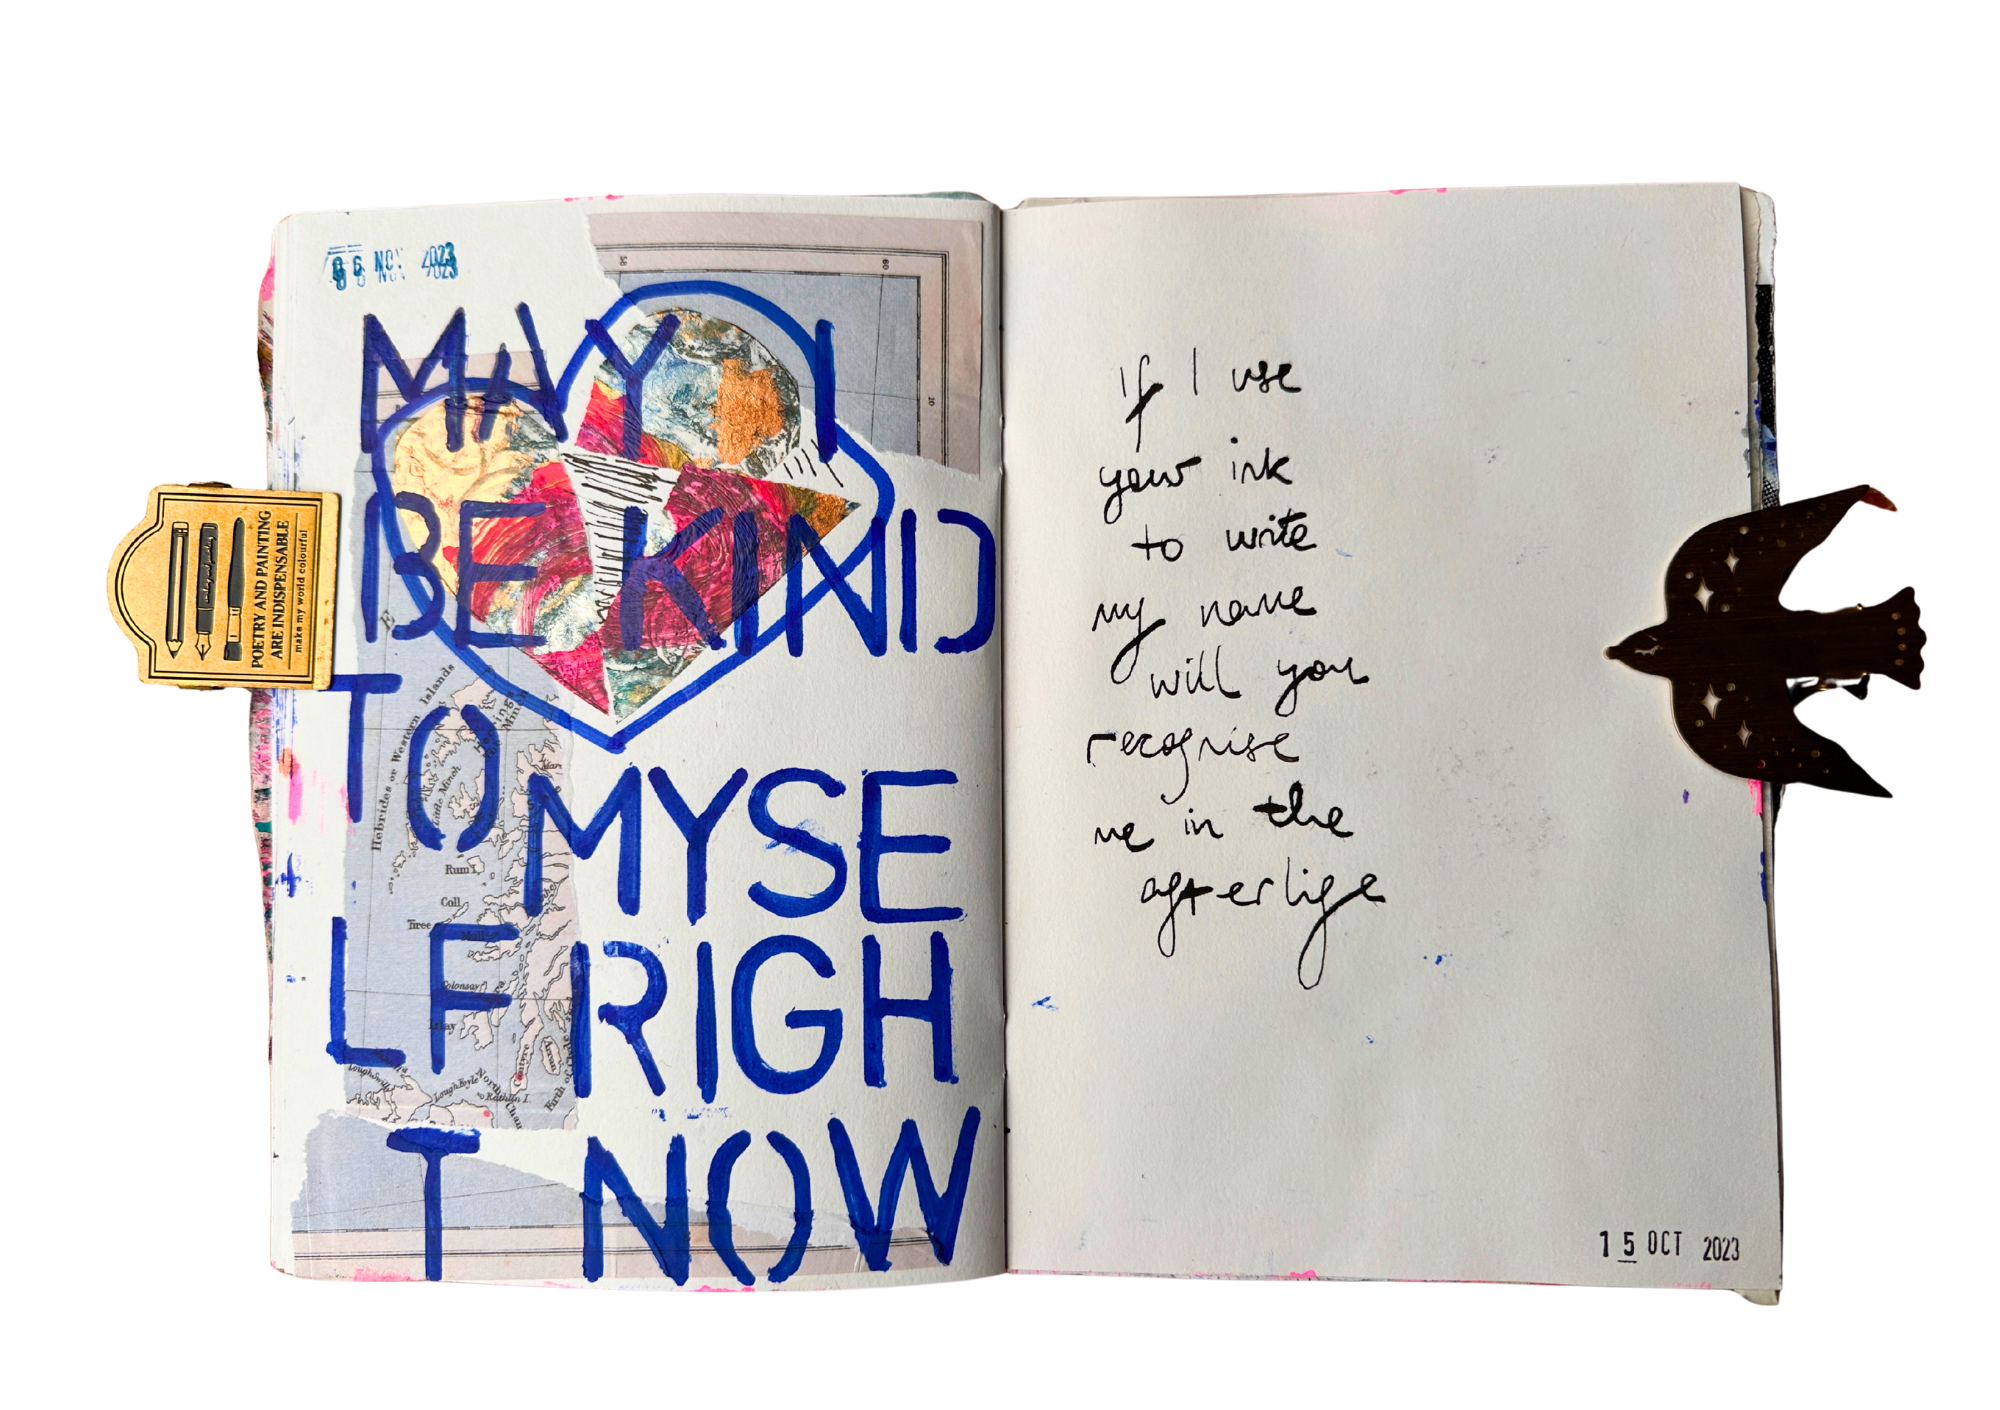 06 NOV 2023
MAY I
BE KIND
TO MYSE
LF RIGH
T NOW
POETRY AND PAINTING
ARE INDISPENSABLE
make my world colourful
58
60
10
E
Hebrides or Western Islands
Little Minch
Rum I.
Coll
Tiree
Mull
Colonsay
Islay
Arran
Cantyre
Firth of
Lough Foyle
North
Chan
Rathlin I.
if I use
your ink
to write
my name
will you
recognise
me in the
afterlife
15 OCT 2023